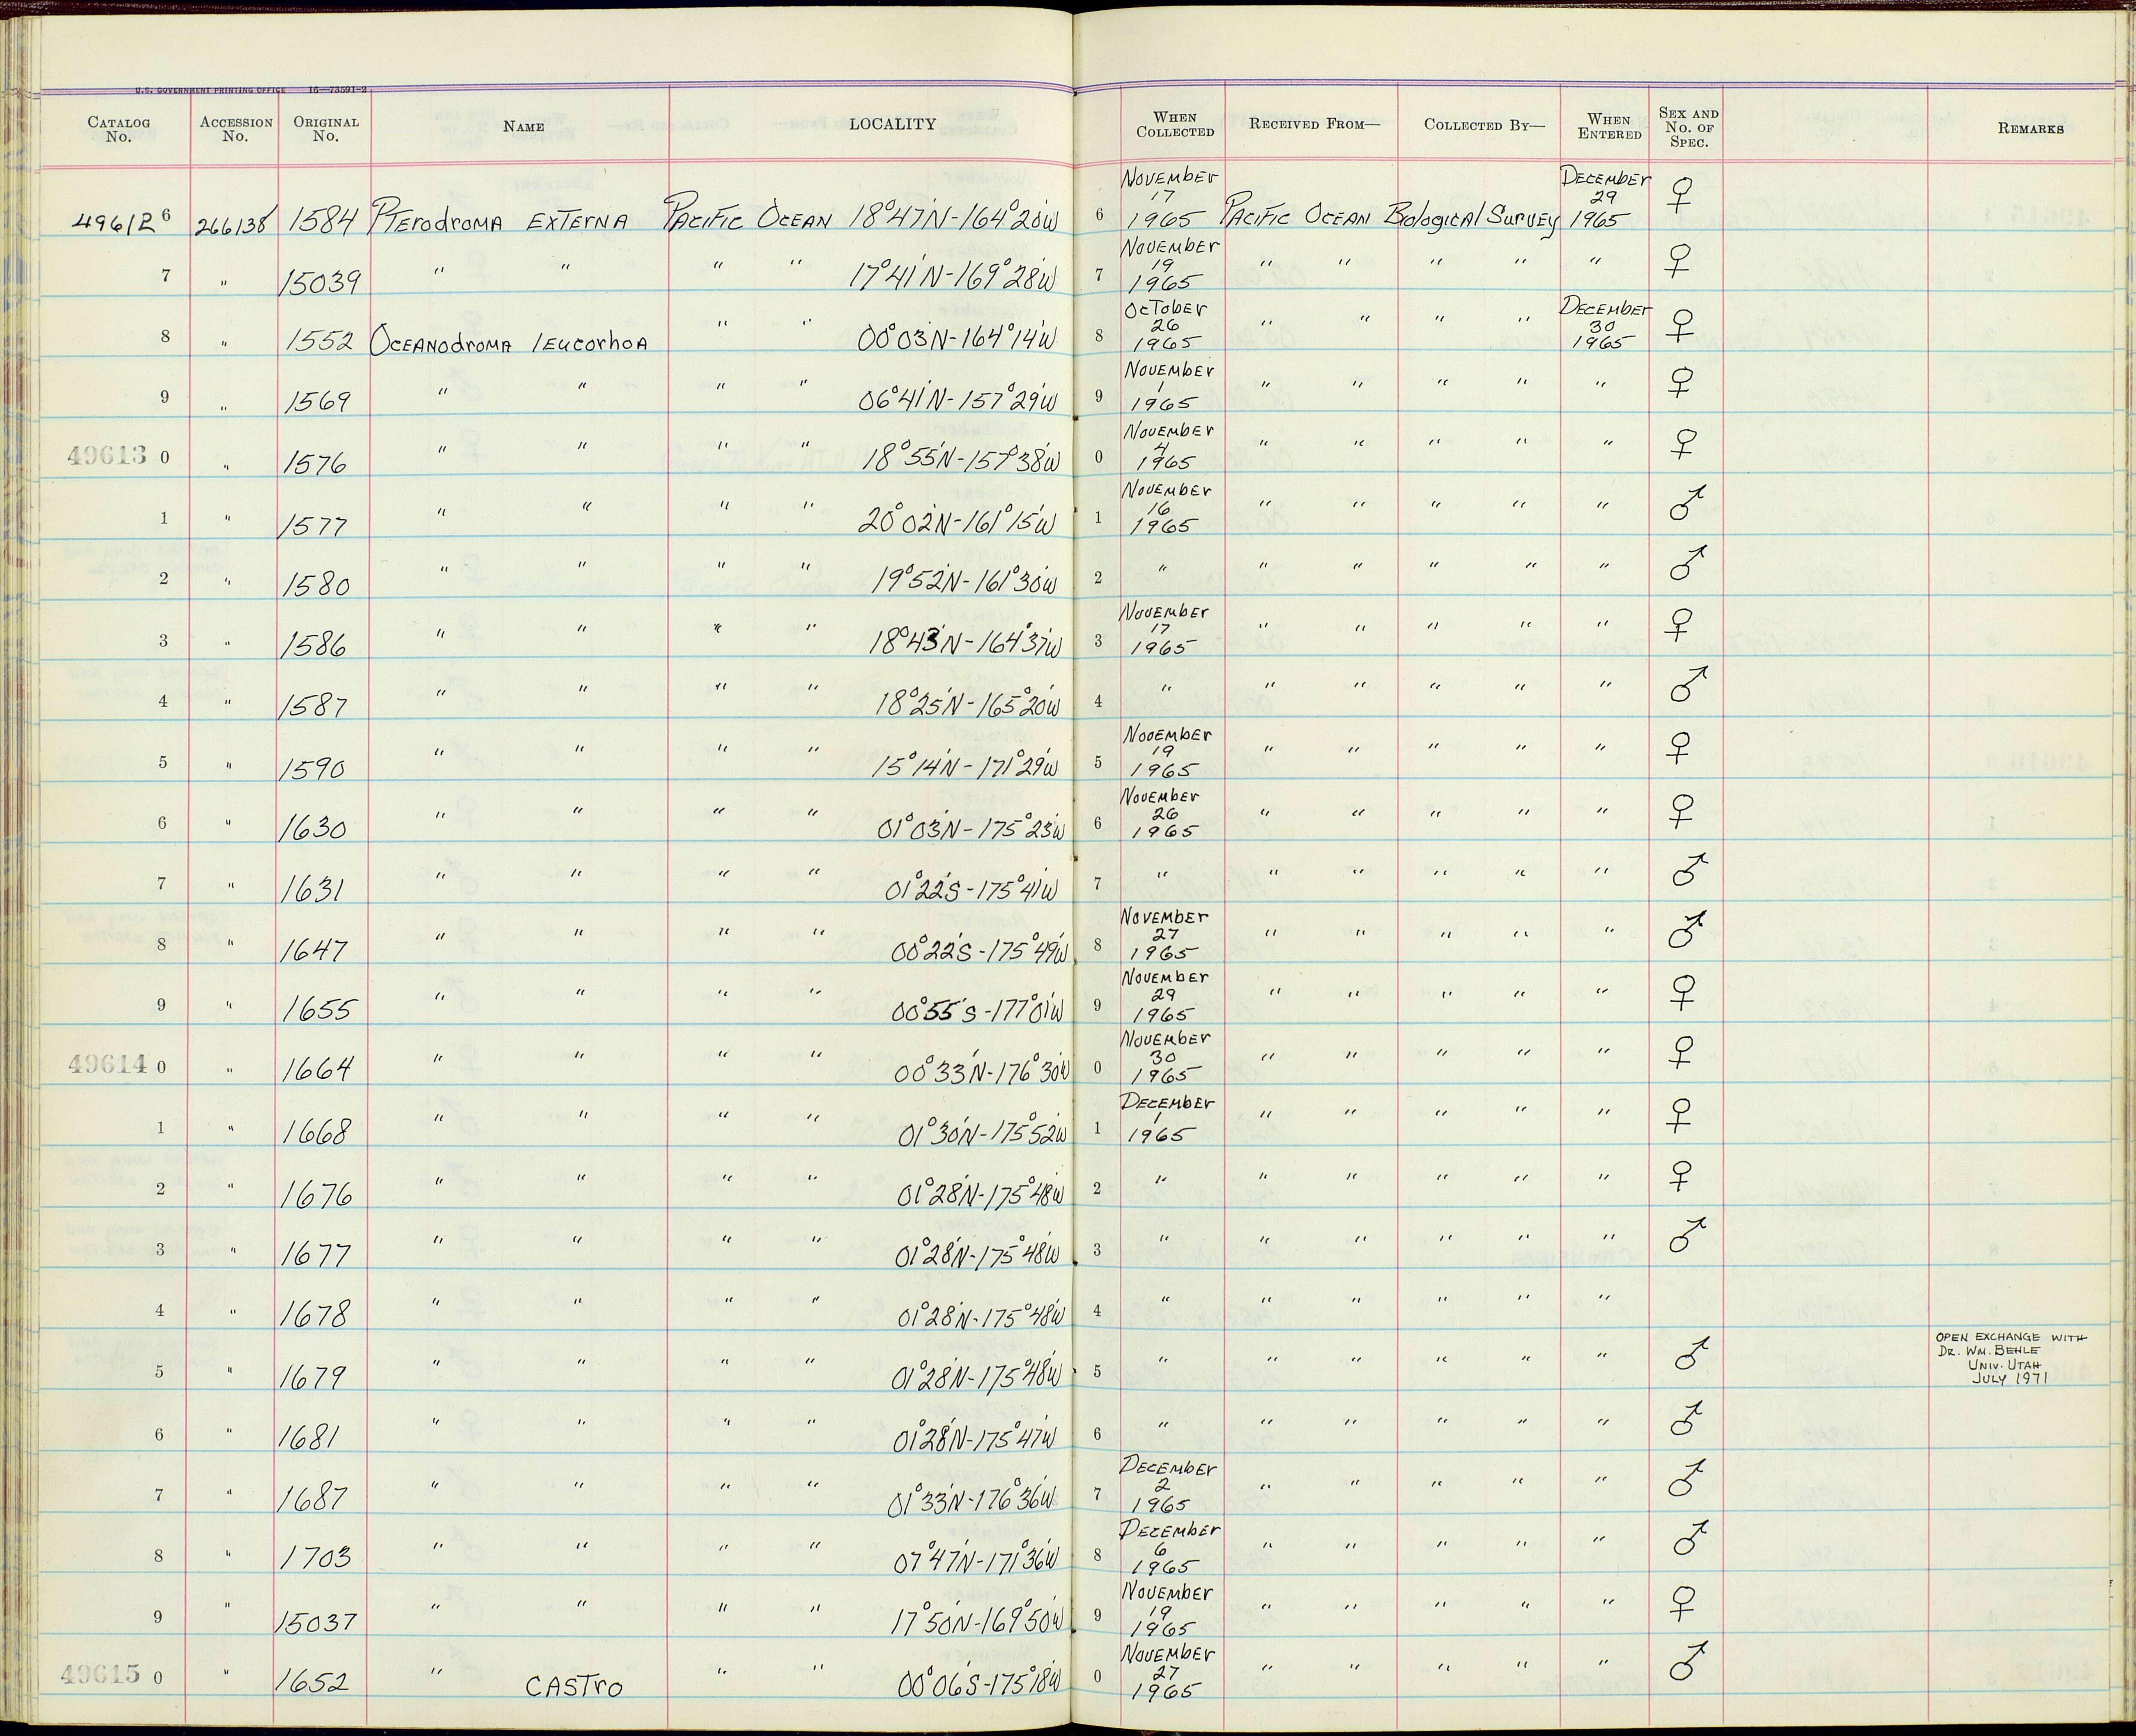 U.S. GOVERNMENT PRINTING OFFICE 16—73591-2
CATALOG No. ACCESSION No. ORIGINAL No. NAME LOCALITY WHEN COLLECTED RECEIVED FROM— COLLECTED BY— WHEN ENTERED SEX AND No. OF SPEC. REMARKS
49612 6 266138 1584 Pterodroma externa Pacific Ocean 18°47'N-164°20'W 6 November 17 1965 Pacific Ocean Biological Survey December 29 1965 ♀
7 " 15039 " " " " 17°41'N-169°28'W 7 November 19 1965 " " " " " ♀
8 " 1552 Oceanodroma leucorhoa " " 00°03'N-164°14'W 8 October 26 1965 " " " " December 30 1965 ♀
9 " 1569 " " " " 06°41'N-157°29'W 9 November 1 1965 " " " " " ♀
49613 0 " 1576 " " " " 18°55'N-157°38'W 0 November 4 1965 " " " " " ♀
1 " 1577 " " " " 20°02'N-161°15'W 1 November 16 1965 " " " " " ♂
2 " 1580 " " " " 19°52'N-161°30'W 2 " " " " " " ♂
3 " 1586 " " " " 18°43'N-164°37'W 3 November 17 1965 " " " " " ♀
4 " 1587 " " " " 18°25'N-165°20'W 4 " " " " " " ♂
5 " 1590 " " " " 15°14'N-171°29'W 5 November 19 1965 " " " " " ♀
6 " 1630 " " " " 01°03'N-175°23'W 6 November 26 1965 " " " " " ♀
7 " 1631 " " " " 01°22'S-175°41'W 7 " " " " " " ♂
8 " 1647 " " " " 00°22'S-175°49'W 8 November 27 1965 " " " " " ♂
9 " 1655 " " " " 00°55'S-177°01'W 9 November 29 1965 " " " " " ♀
49614 0 " 1664 " " " " 00°33'N-176°30'W 0 November 30 1965 " " " " " ♀
1 " 1668 " " " " 01°30'N-175°52'W 1 December 1 1965 " " " " " ♀
2 " 1676 " " " " 01°28'N-175°48'W 2 " " " " " " ♀
3 " 1677 " " " " 01°28'N-175°48'W 3 " " " " " " ♂
4 " 1678 " " " " 01°28'N-175°48'W 4 " " " " " "
5 " 1679 " " " " 01°28'N-175°48'W 5 " " " " " " ♂ OPEN EXCHANGE WITH
DR. WM. BEHLE
UNIV. UTAH
JULY 1971
6 " 1681 " " " " 01°28'N-175°47'W 6 " " " " " " ♂
7 " 1687 " " " " 01°33'N-176°36'W 7 December 2 1965 " " " " " ♂
8 " 1703 " " " " 07°47'N-171°36'W 8 December 6 1965 " " " " " ♂
9 " 15037 " " " " 17°50'N-169°50'W 9 November 19 1965 " " " " " ♀
49615 0 " 1652 " castro " " 00°06'S-175°18'W 0 November 27 1965 " " " " " ♂